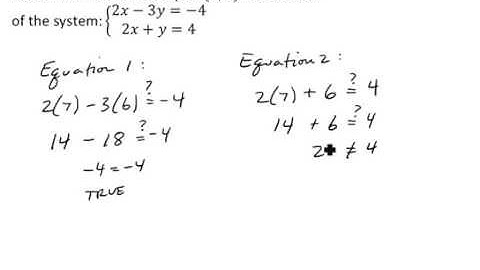 of the system: {2x − 3y = −4
2x + y = 4
Equation 1 :
2(7) - 3(6) ≟ -4
14 - 18 ≟ -4
-4 = -4
TRUE
Equation 2 :
2(7) + 6 ≟ 4
14 + 6 ≟ 4
≠ 4